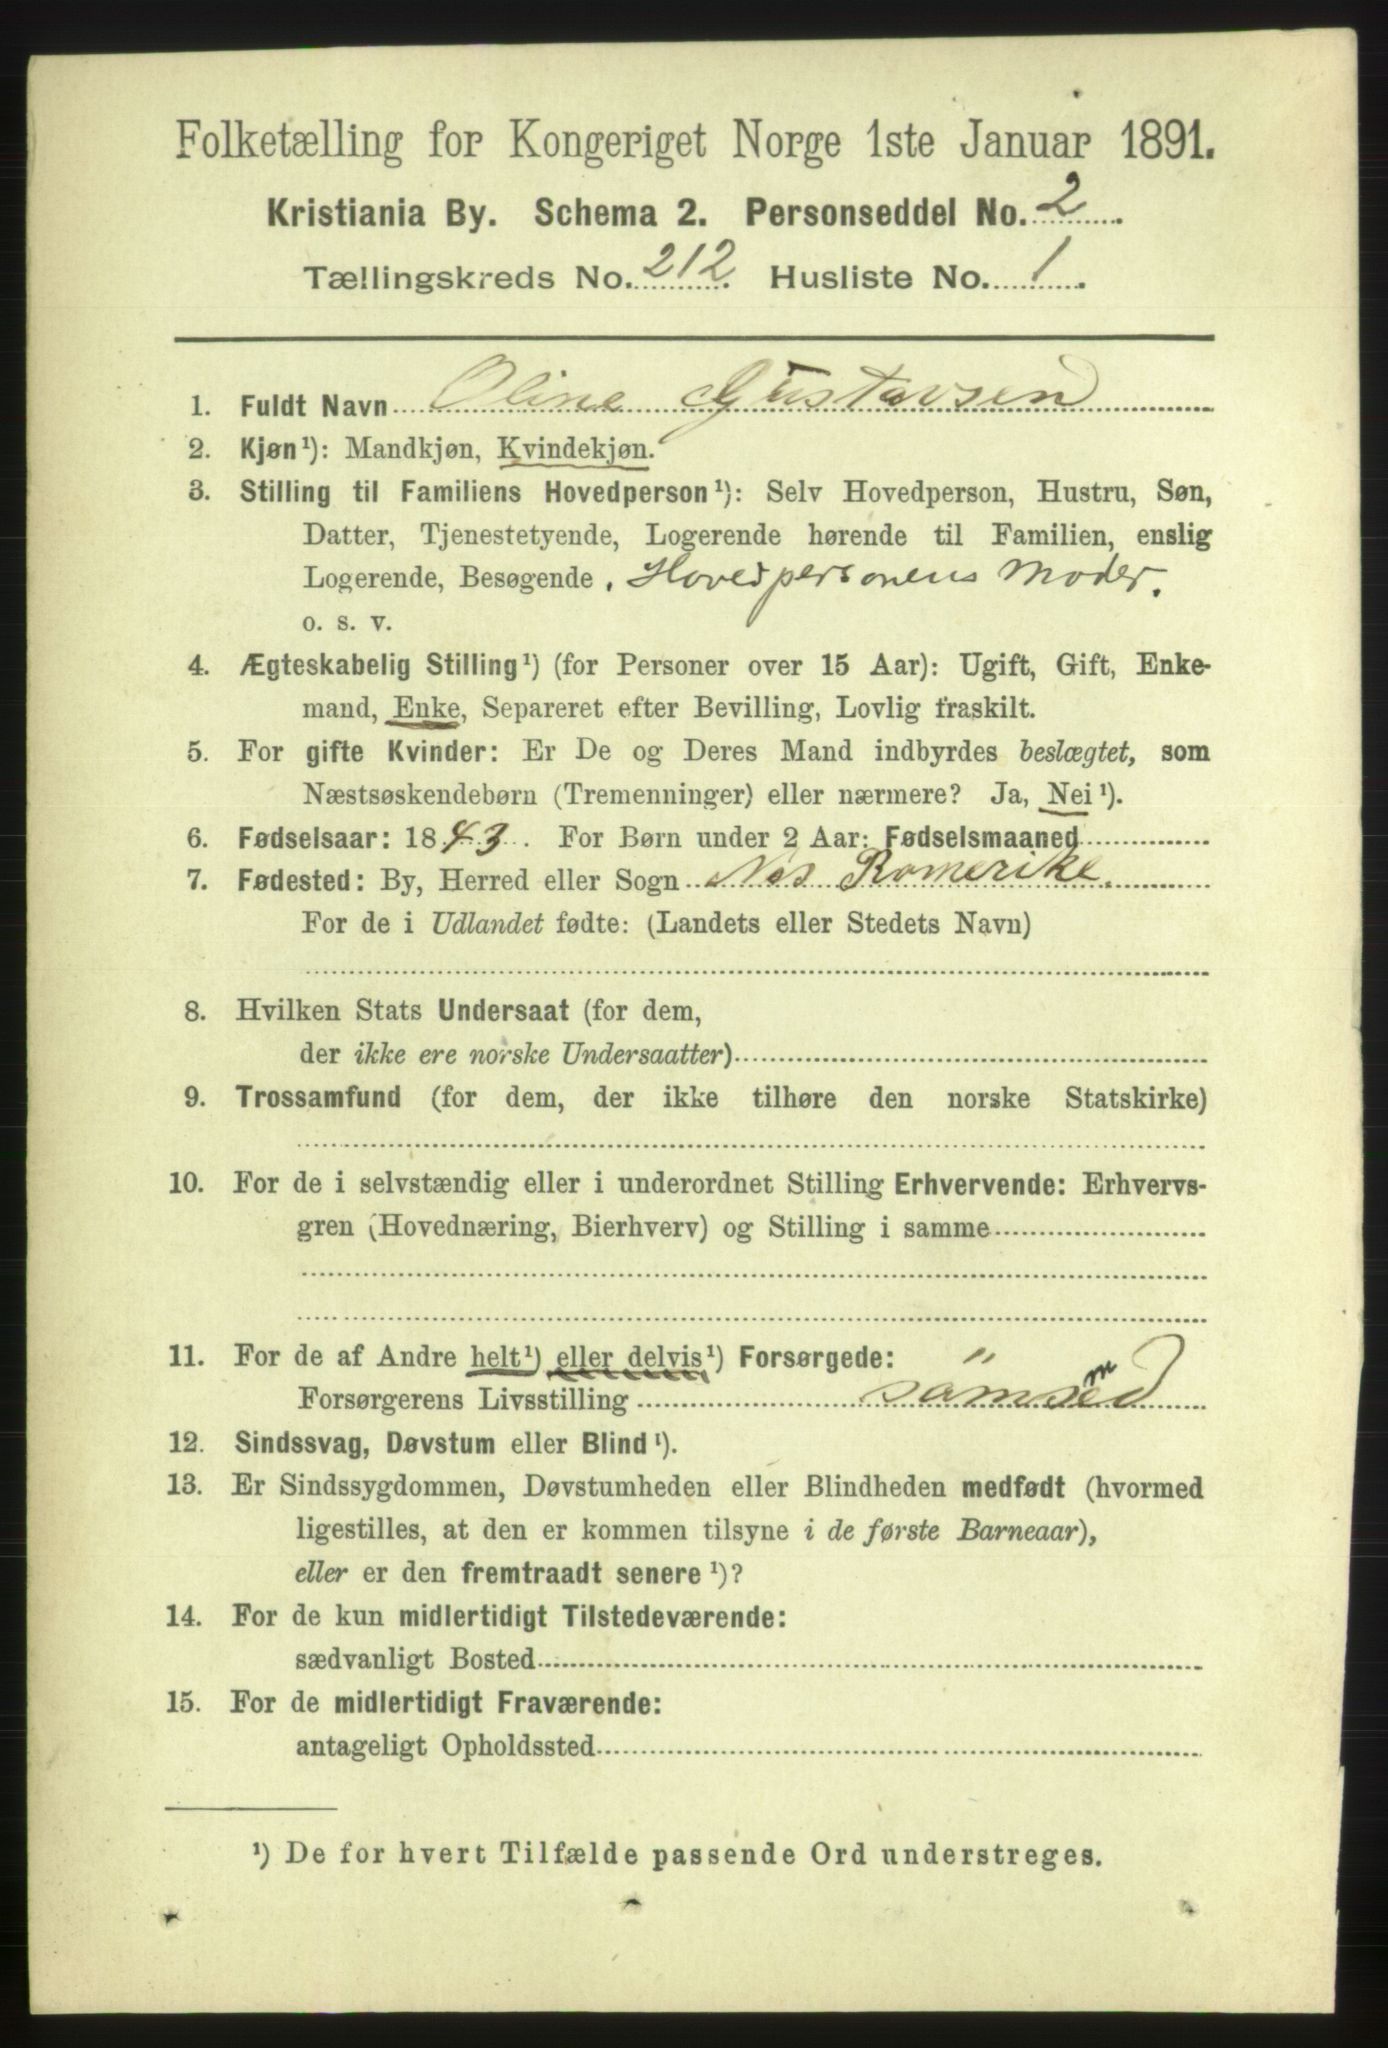 Folketælling for Kongeriget Norge 1ste Januar 1891.
Kristiania By. Schema 2. Personseddel No. 2.
Tællingskreds No. 212. Husliste No. 1.
1. Fuldt Navn Oline Gustavsen
2. Kjøn¹): Mandkjøn, Kvindekjøn.
3. Stilling til Familiens Hovedperson¹): Selv Hovedperson, Hustru, Søn,
Datter, Tjenestetyende, Logerende hørende til Familien, enslig
Logerende, Besøgende. Hovedpersonens Moder.
o. s. v.
4. Ægteskabelig Stilling¹) (for Personer over 15 Aar): Ugift, Gift, Enke-
mand, Enke, Separeret efter Bevilling, Lovlig fraskilt.
5. For gifte Kvinder: Er De og Deres Mand indbyrdes beslægtet, som
Næstsøskendebørn (Tremenninger) eller nærmere? Ja, Nei¹).
6. Fødselsaar: 1843. For Børn under 2 Aar: Fødselsmaaned
7. Fødested: By, Herred eller Sogn Nes Romerike.
For de i Udlandet fødte: (Landets eller Stedets Navn)
8. Hvilken Stats Undersaat (for dem,
der ikke ere norske Undersaatter)
9. Trossamfund (for dem, der ikke tilhøre den norske Statskirke)
10. For de i selvstændig eller i underordnet Stilling Erhvervende: Erhvervs-
gren (Hovednæring, Bierhverv) og Stilling i samme
11. For de af Andre helt¹) eller delvis¹) Forsørgede:
Forsørgerens Livsstilling
12. Sindssvag, Døvstum eller Blind¹).
13. Er Sindssygdommen, Døvstumheden eller Blindheden medfødt (hvormed
ligestilles, at den er kommen tilsyne i de første Barneaar),
eller er den fremtraadt senere¹)?
14. For de kun midlertidigt Tilstedeværende:
sædvanligt Bosted
15. For de midlertidigt Fraværende:
antageligt Opholdssted
¹) De for hvert Tilfælde passende Ord understreges.